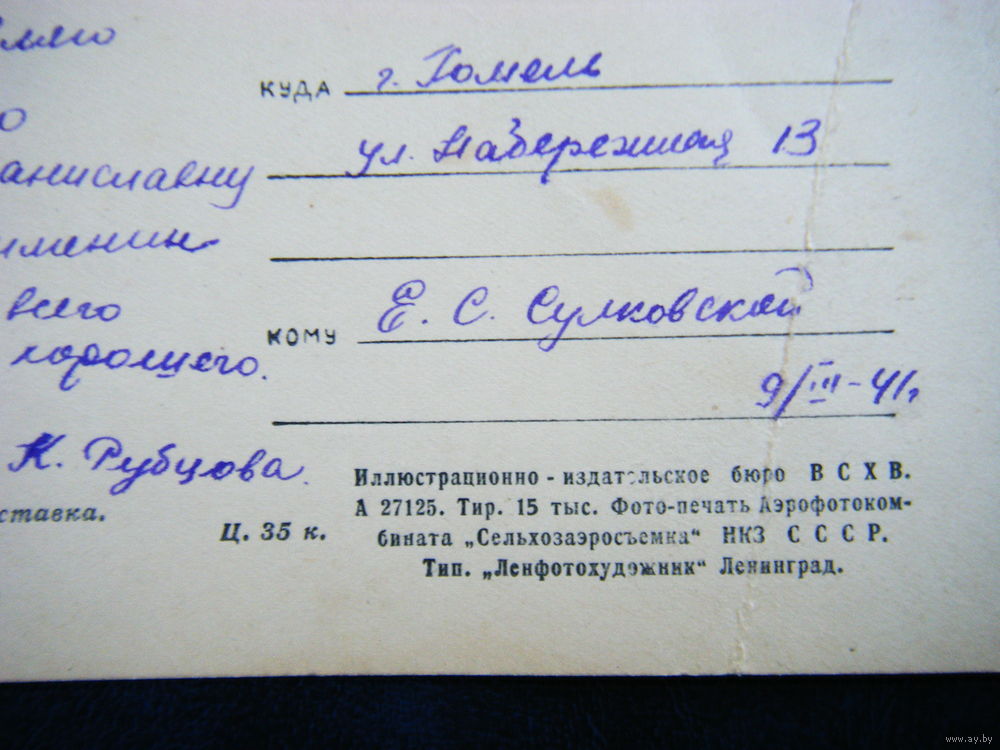 о
аниславну
именин
всего
хорошего.
К. Рубцова.
ставка.
Ц. 35 к.
КУДА г. Гомель
ул. Набережная 13
КОМУ Е. С. Сулковской
9/III-41г
Иллюстрационно-издательское бюро ВСХВ.
А 27125. Тир. 15 тыс. Фото-печать Аэрофотоком-
бината „Сельхозаэросъемка“ НКЗ СССР.
Тип. „Ленфотохудожник“ Ленинград.
www.ay.by